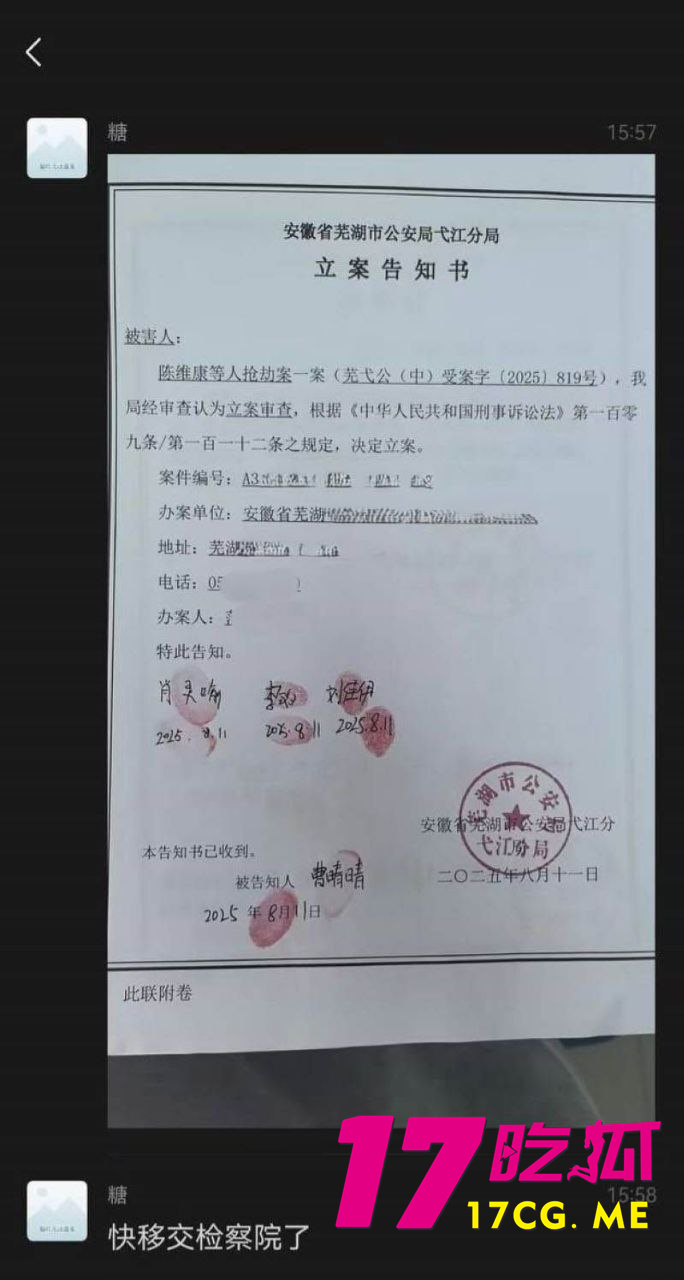 糖
15:57
安徽省芜湖市公安局弋江分局
立案告知书
被害人：
陈维康等人抢劫案一案（芜弋公（中）受案字〔2025〕819号），我
局经审查认为立案审查，根据《中华人民共和国刑事诉讼法》第一百零
九条/第一百一十二条之规定，决定立案。
案件编号：A3
办案单位：安徽省芜湖
地址：芜湖
电话：05
办案人：
特此告知。
2025.8.11 2025.8.11 2025.8.11
芜湖市公安局
弋江分局
安徽省芜湖市公安局弋江分
二〇二五年八月十一日
本告知书已收到。
被告知人 曹晴晴
2025年8月11日
此联附卷
糖
15:58
快移交检察院了
17吃狐
17CG.ME